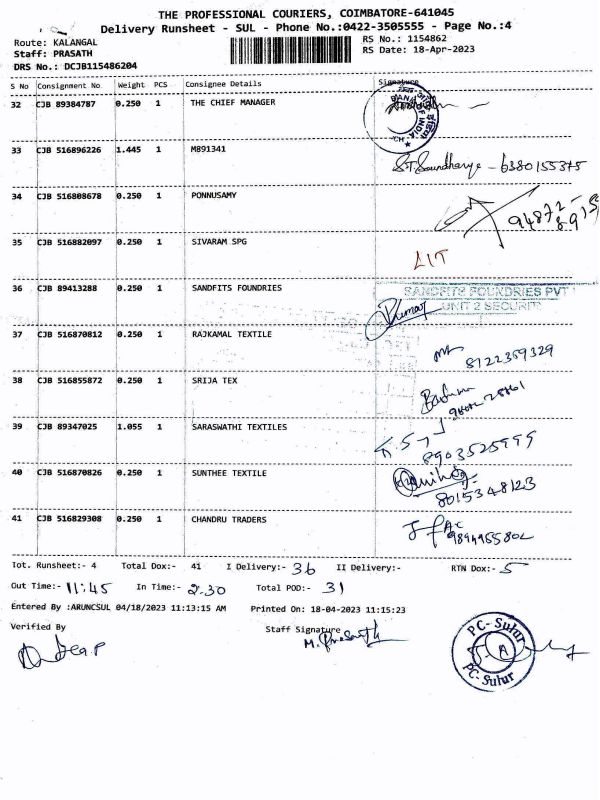 THE PROFESSIONAL COURIERS, COIMBATORE-641045
Delivery Runsheet - SUL - Phone No.:0422-3505555 - Page No.:4
Route: KALANGAL
Staff: PRASATH
DRS No.: DCJB115486204
RS No.: 1154862
RS Date: 18-Apr-2023
S No Consignment No Weight PCS Consignee Details Signature
32 CJB 89384787 0.250 1 THE CHIEF MANAGER
33 CJB 516896226 1.445 1 M891341
S.T. Soundharya - 6380155375
34 CJB 516808678 0.250 1 PONNUSAMY
94872-
35 CJB 516882097 0.250 1 SIVARAM SPG
LIT
36 CJB 89413288 0.250 1 SANDFITS FOUNDRIES
SANDFITS FOUNDRIES PVT
UNIT 2 SECURITY
Kumar
37 CJB 516870812 0.250 1 RAJKAMAL TEXTILE
8122359329
38 CJB 516855872 0.250 1 SRIJA TEX
39 CJB 89347025 1.055 1 SARASWATHI TEXTILES
8903525995
40 CJB 516870826 0.250 1 SUNTHEE TEXTILE
8015348123
41 CJB 516829308 0.250 1 CHANDRU TRADERS
9894955802
Tot. Runsheet:- 4 Total Dox:- 41 I Delivery:- 36 II Delivery:- RTN Dox:- 5
Out Time:- 11:45 In Time:- 2.30 Total POD:- 31
Entered By :ARUNCSUL 04/18/2023 11:13:15 AM Printed On: 18-04-2023 11:15:23
Verified By Staff Signature
M. Prasath
PC- Sulur
A
PC- Sulur